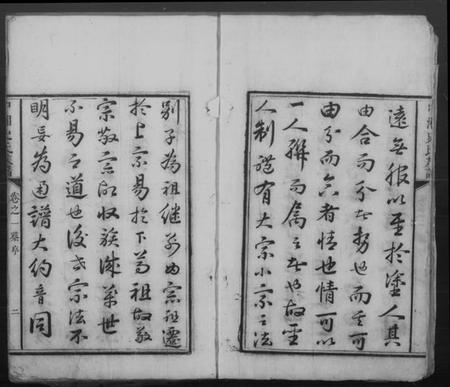 遠無服以至於塗人其
由合而分者勢也而其可
由分而合者情也情可以
一人聯而屬之者也故聖
人制禮有大宗小宗之法
別子為祖繼別為宗祖遷
於上宗易於下尊祖故敬
宗敬宗所以收族誠萬世
不易之道也後世宗法不
明妥為用譜大約音同
卷之一 墓序 二